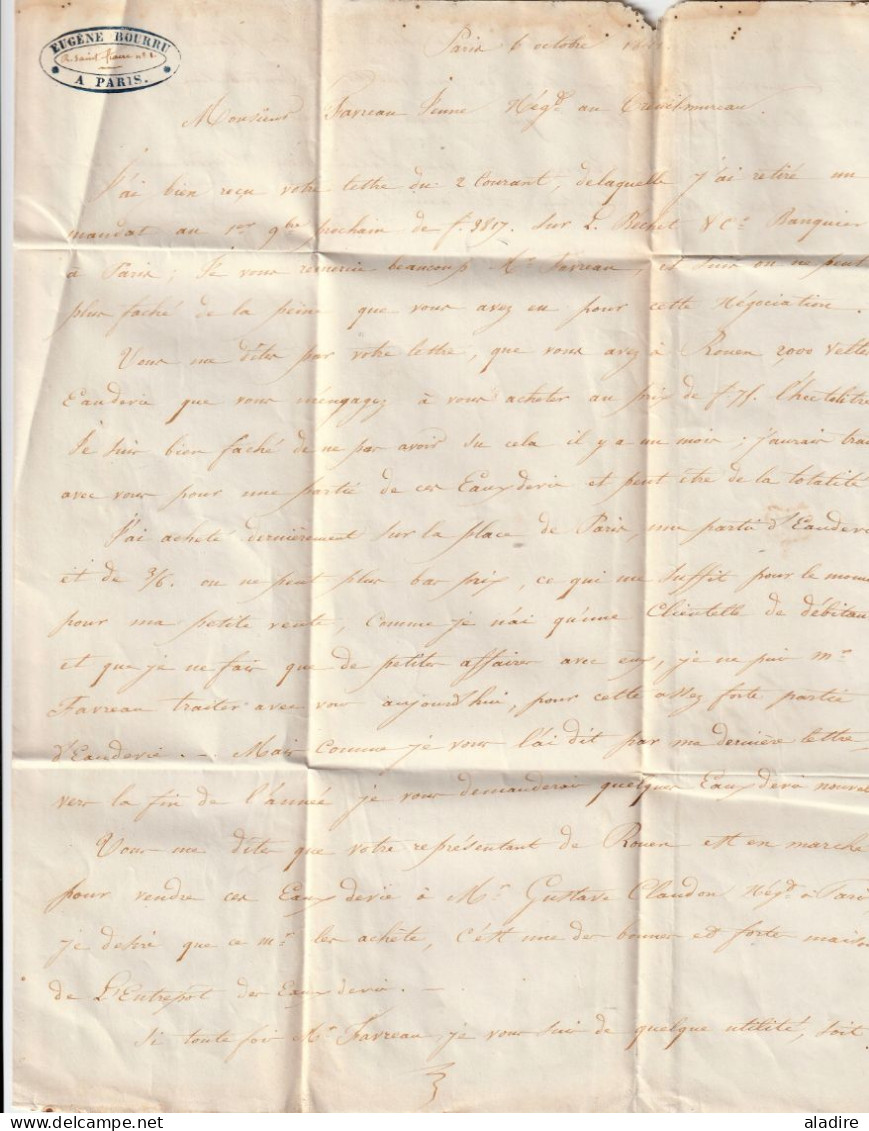 EUGÈNE BOURRU
R. Saint Pierre n° 2
A PARIS.
Paris 6 octobre
Monsieur Favreau Jeune Nég.t au
J'ai bien reçu votre lettre du 2 Courant, delaquelle j'ai retiré un
mandat au 1er 9bre prochain de f. 3817. sur L. Bechet & Cie Banquier
à Paris; Je vous remercie beaucoup Mr Favreau, et suis on ne peut
plus faché de la peine que vous avez eu pour cette Négociation.
Vous me dites par votre lettre, que vous avez à Rouen 2,000 Veltes
Eauderie que vous m'engagez à vous acheter au prix de f. 75. l'hectolitre
Je suis bien faché de ne pas avoir su cela il y a un mois; j'aurais trai
avec vous pour une partie de ces Eauxderie et peut être de la totalité
J'ai acheté dernièrement sur la place de Paris, une partie d'Eauderie
et de 3/6. on ne peut plus bas prix, ce qui me suffit pour le mome
pour ma petite vente, comme je n'ai qu'une Clientelle de débitan
et que je ne fais que de petites affaires avec eux, je ne puis mr
Favreau traiter avec vous aujourd'hui, pour cette assez forte partie
d'Eauderie. — Mais comme je vous l'ai dit par ma dernière lettre,
vers la fin de l'année je vous demanderai quelques Eauxderie nouvel
Vous me dites que votre représentant de Rouen est en marché
pour vendre ces Eauxderie à Mr Gustave Claudon Négt à Paris
je desire que ce mr les achète, c'est une des bonnes et forte maison
de L'Entrepot des Eauxderie. —
Si toute fois Mr Favreau, je vous suis de quelque utilité, soit
aladire